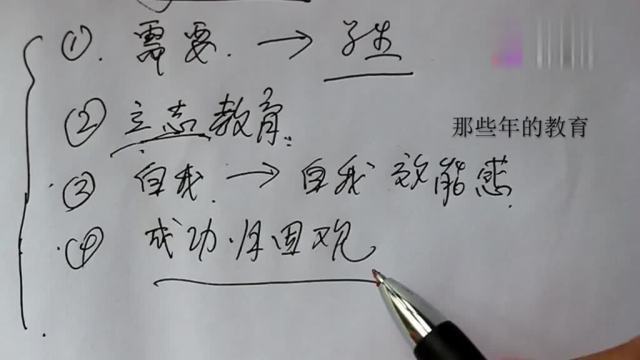 ① 需要 → 学生
② 立志教育
那些年的教育
③ 自我 → 自我效能感
④ 成功·归因观